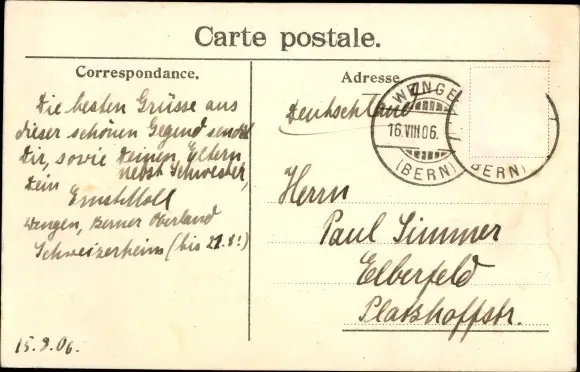 Carte postale.
Correspondance.
Adresse.
Die besten Grüsse aus
dieser schönen Gegend sendet
Dir, sowie Deinen Eltern
nebst Schwester,
Dein
Ernst Moll
Wengen, Berner Oberland
Schweizerheim (bis 21.8!)
15.8.06.
Deutschland
WENGEN
16.VIII.06.
(BERN)
BERN)
Herrn
Paul Simmer
Elberfeld
Platzhoffstr.